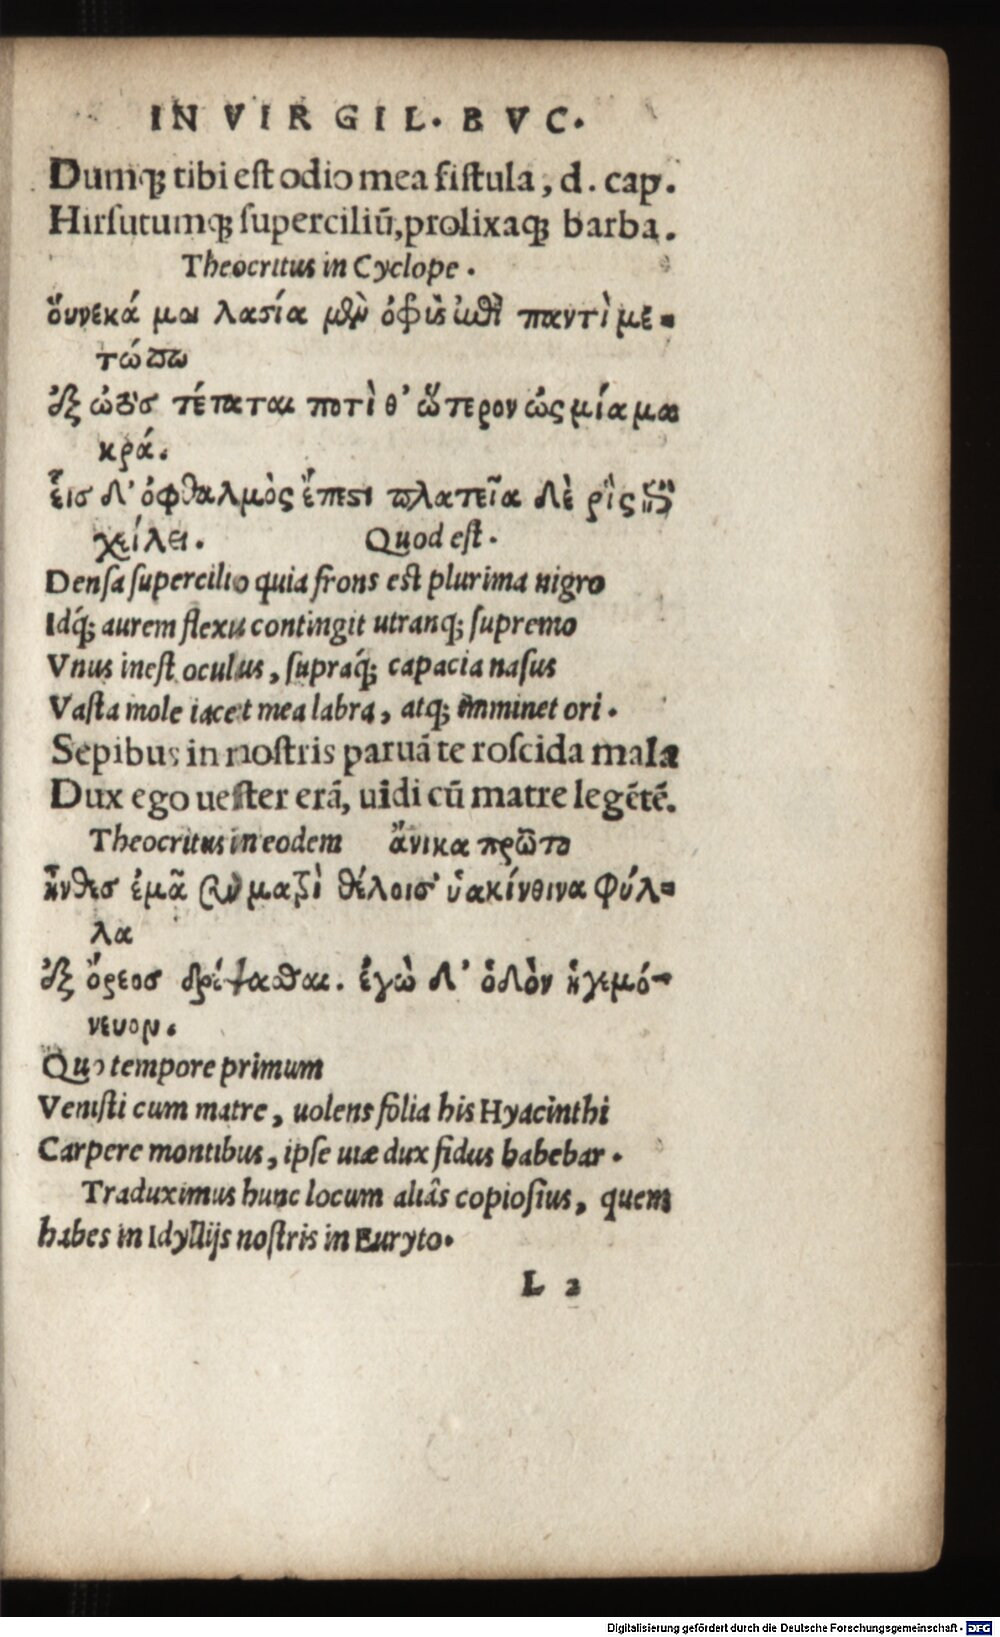 IN VIRGIL. BVC.
Dumq; tibi est odio mea fistula, d. cap.
Hirsutumq; superciliū, prolixaq; barba.
Theocritus in Cyclope.
ὅυνεκά μοι λασία μὲν ὀφρὺς ἐπὶ παντὶ με-
τώπω
ἐξ ὠτὸσ τέταται ποτὶ θ' ὥτερον ὡς μία μα
κρά.
εἷισ δ' ὀφθαλμὸς ἔπεστι πλατεῖα δὲ ρὶς ἐπὶ
χείλει. Quod est.
Densa supercilio quia frons est plurima nigro
Idq́; aurem flexu contingit utranq; supremo
Vnus inest oculus, supraq́; capacia nasus
Vasta mole iacet mea labra, atq; imminet ori.
Sepibus in nostris paruā te roscida mala
Dux ego uester erā, uidi cū matre legētē.
Theocritus in eodem ἄνικα πρᾶτο
ἦνθεσ ἐμᾶ σὺν ματρὶ θέλοισ' ὑακίνθινα φύλ-
λα
ἐξ ὄρεοσ δρέψασθαι. ἐγὼ δ' ὁδὸν ἡγεμό-
νευον.
Quo tempore primum
Venisti cum matre, uolens folia his Hyacinthi
Carpere montibus, ipse uiæ dux fidus habebar.
Traduximus hunc locum aliâs copiosius, quem
habes in Idyllijs nostris in Euryto.
L 2
Digitalisierung gefördert durch die Deutsche Forschungsgemeinschaft - DFG